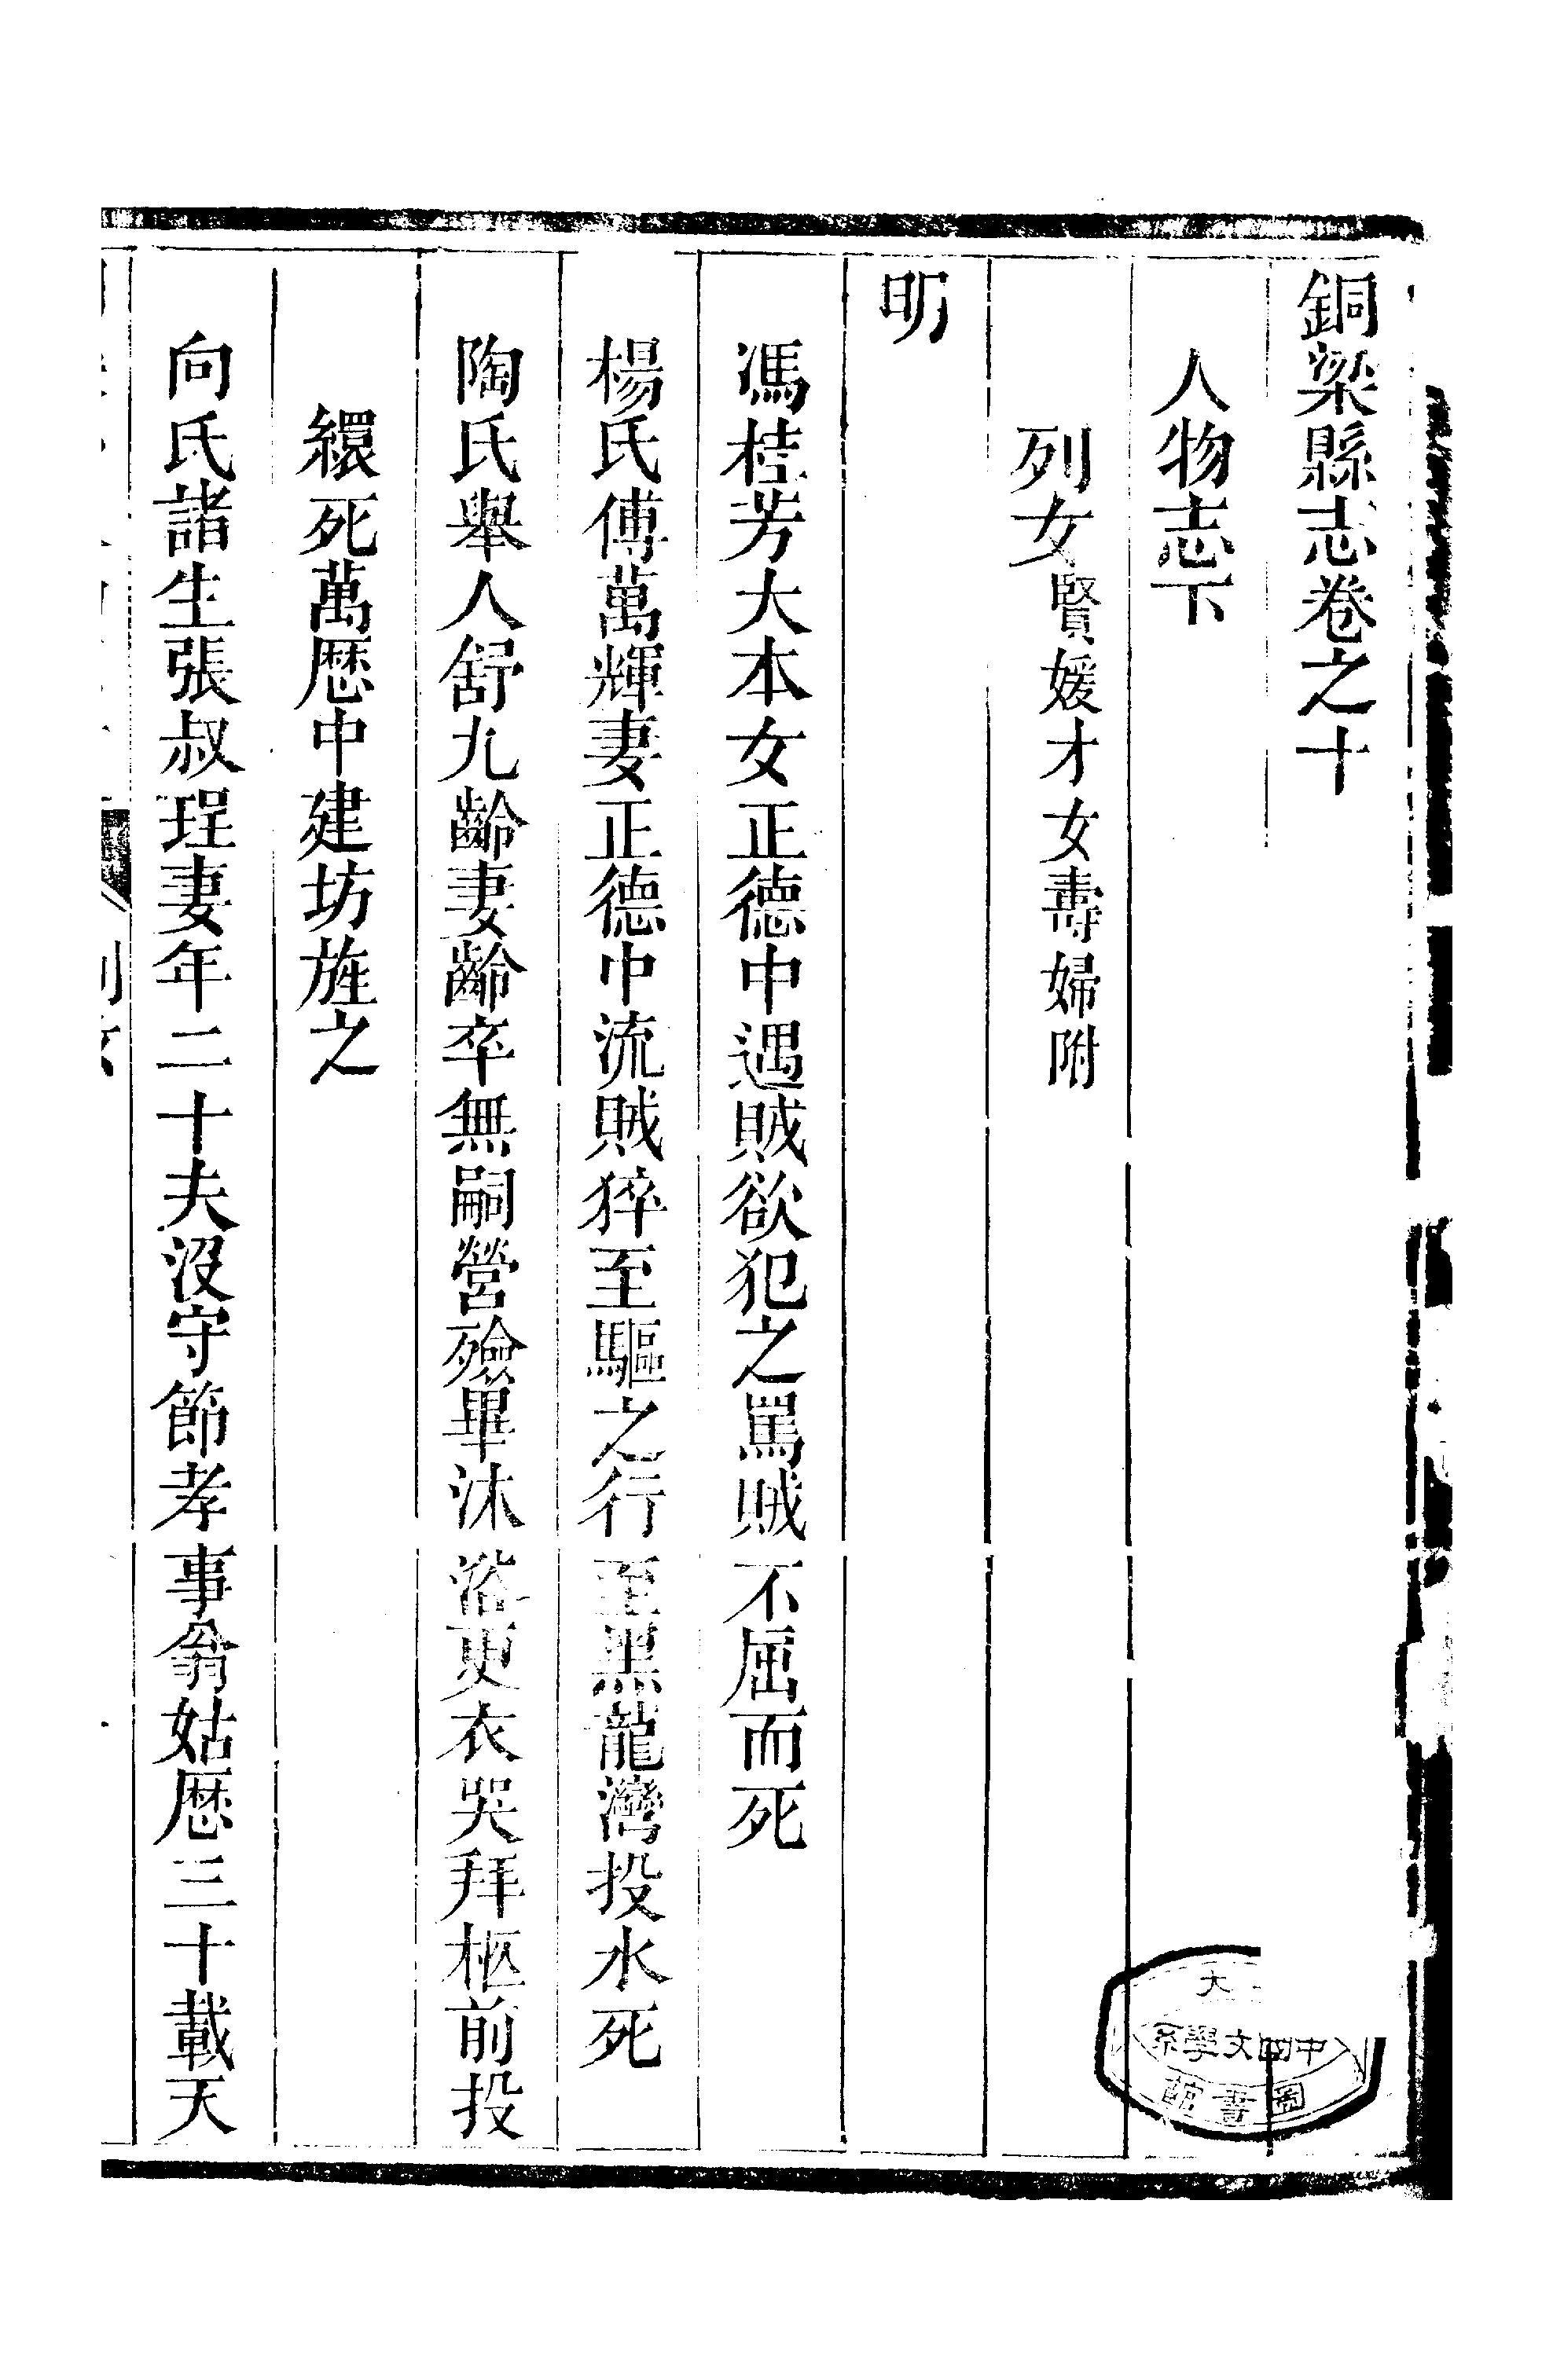 銅梁縣志卷之十
人物志下
列女賢媛才女壽婦附
明
馮桂芳大本女正德中遇賊欲犯之罵賊不屈而死
楊氏傅萬輝妻正德中流賊猝至驅之行至黑龍灣投水死
陶氏舉人舒九齡妻齡卒無嗣營殮畢沐浴更衣哭拜柩前投
繯死萬厯中建坊旌之
向氏諸生張叔珵妻年二十夫沒守節孝事翁姑厯三十載天
大
中國文學系
圖書館